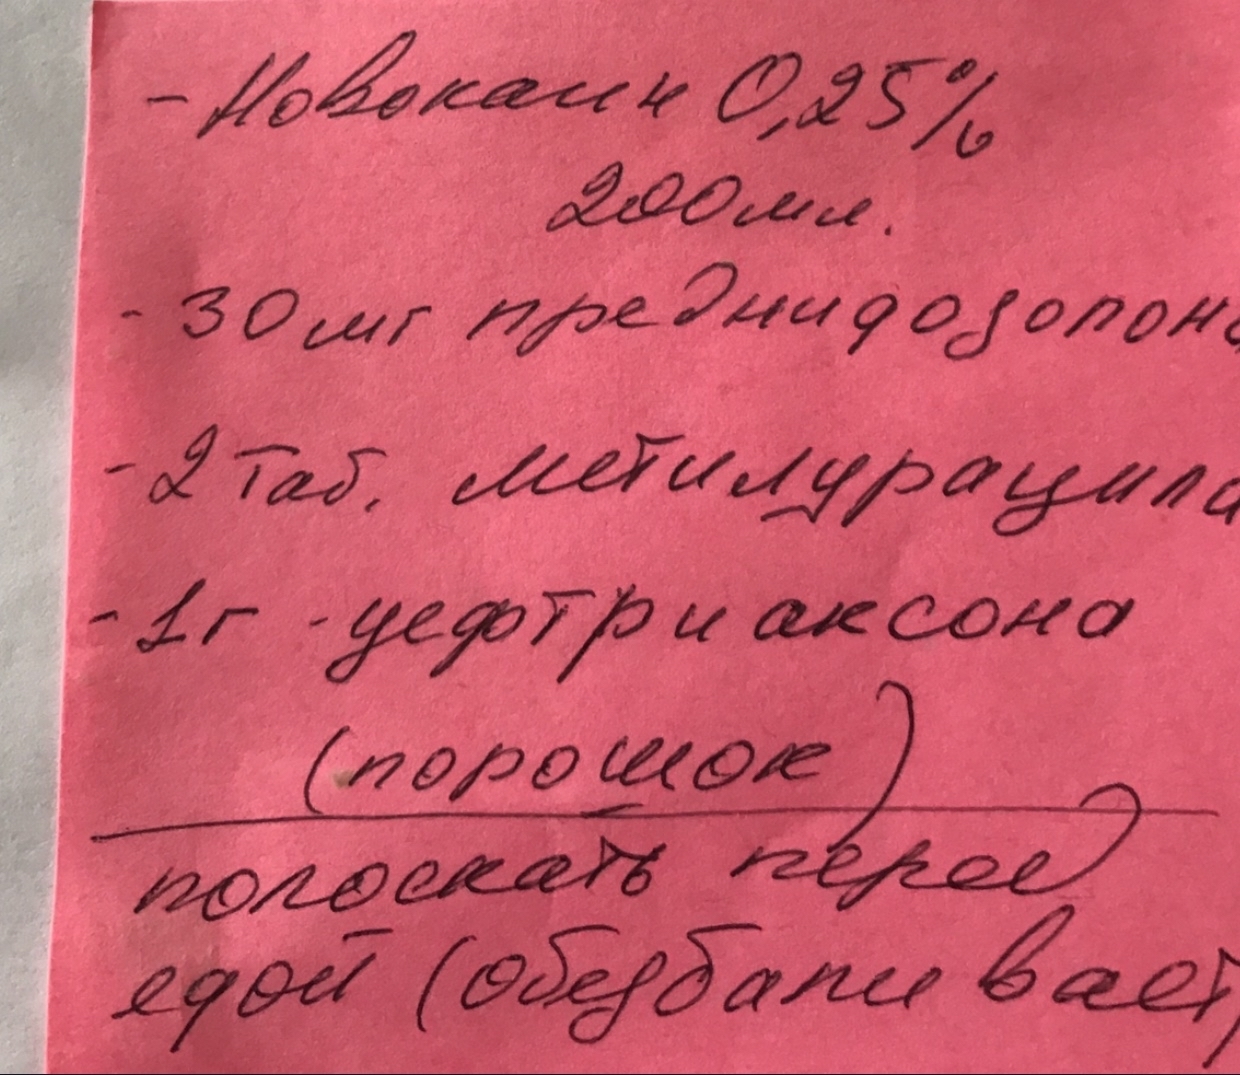 - Новокаин 0,25%
200мл.
- 30мг преднидозолона
- 2 таб. метилурацила
- 1г - цефтриаксона
(порошок)
полоскать перед
едой (обезбаливает)